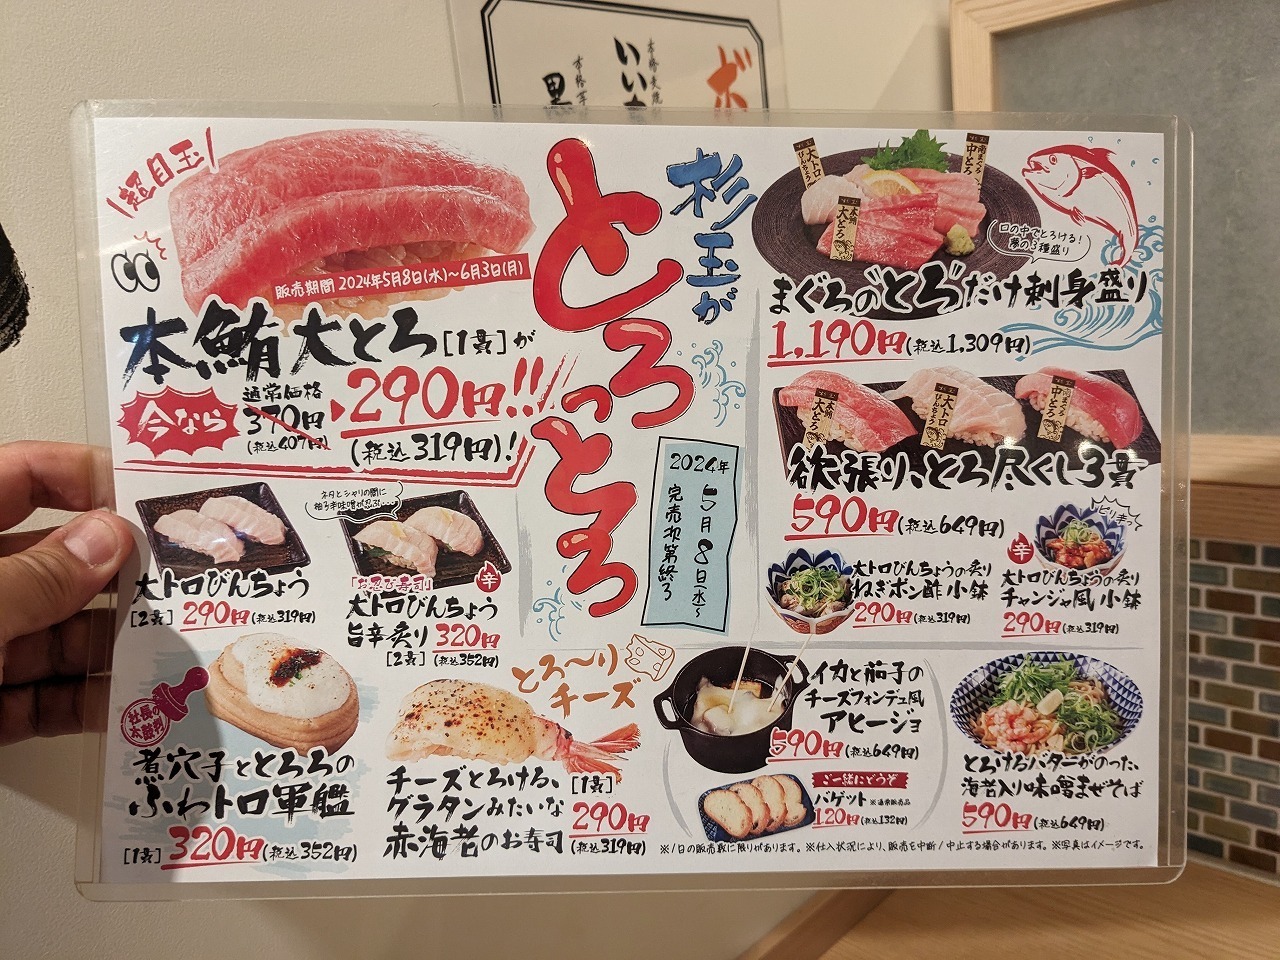 ボ
本格麦焼
いい
本格芋
黒
超目玉
販売期間 2024年5月8日(水)~6月3日(月)
本鮪大とろ[1貫]が
今なら
通常価格
370円
(税込407円)
290円!!
(税込319円)!
杉玉が
とろっとろ
2024年
5月8日(水)~
完売次第終了
大トロびんちょう
本鮪大とろ
南まぐろ中とろ
口の中でとろける!
夢の3種盛り
まぐろの"とろ"だけ刺身盛り
1,190円(税込1,309円)
本鮪大とろ
大トロびんちょう
南まぐろ中とろ
欲張り、とろ尽くし3貫
590円(税込649円)
大トロびんちょうの炙り
ねぎポン酢 小鉢
290円(税込319円)
ピリ辛っ
辛
大トロびんちょうの炙り
チャンジャ風 小鉢
290円(税込319円)
大トロびんちょう
[2貫] 290円(税込319円)
ネタとシャリの間に
柚子辛味噌が忍ぶ…
「お忍び寿司」
辛
大トロびんちょう
旨辛炙り 320円
[2貫] (税込352円)
社長の太鼓判
煮穴子ととろろの
ふわトロ軍艦
[1貫] 320円(税込352円)
とろ~り
チーズ
チーズとろける、
グラタンみたいな
赤海老のお寿司
[1貫]
290円
(税込319円)
イカと茄子の
チーズフォンデュ風
アヒージョ
590円(税込649円)
ご一緒にどうぞ
バゲット ※通常販売品
120円(税込132円)
とろけるバターがのった、
海老入り味噌まぜそば
590円(税込649円)
※1日の販売数に限りがあります。※仕入状況により、販売を中断/中止する場合があります。※写真はイメージです。